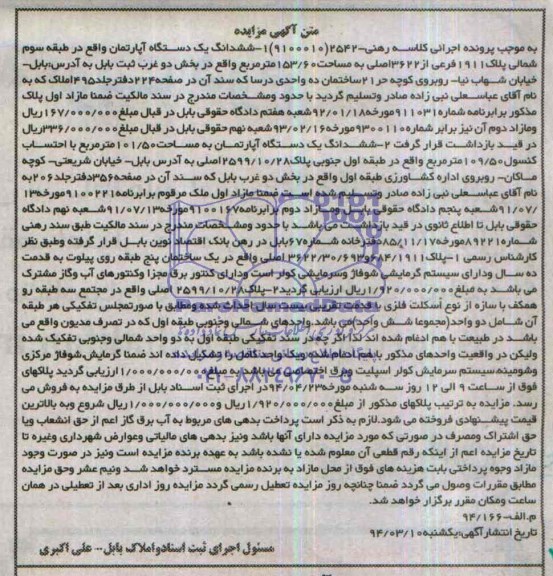 متن آگهی مزایده
به موجب پرونده اجرائی کلاسه رهنی-۲۵۴۲(۹۱۰۰۰۱۰)۱-ششدانگ یک دستگاه آپارتمان واقع در طبقه سوم
شمالی پلاک۱۹۱۱فرعی از۳۶۲۲اصلی به مساحت۱۵۳/۶۰مترمربع واقع در بخش دو غرب ثبت بابل به آدرس:بابل-
خیابان شهاب نیا- روبروی کوچه حر۲۱ساختمان ده واحدی درسا که سند آن در صفحه۲۲۴دفترجلد۴۹۵املاک که به
نام آقای عباسعلی نبی زاده صادر وتسلیم گردید با حدود ومشخصات مندرج در سند مالکیت ضمنا مازاد اول پلاک
مذکور برابرنامه شماره۹۱۱۰۳۱مورخه۹۲/۰۱/۱۸شعبه هفتم دادگاه حقوقی بابل در قبال مبلغ۱۶۷/۰۰۰/۰۰۰ریال
ومازاد دوم آن نیز برابر شماره۹۳۰۰۱۱۰مورخه۹۳/۰۲/۱۶شعبه نهم حقوقی بابل در قبال مبلغ۳۳۶/۰۰۰/۰۰۰ریال
در قید بازداشت قرار گرفت ۲-ششدانگ یک دستگاه آپارتمان به مساحت۱۰۱/۵۰مترمربع با احتساب
کنسول۱۰۹/۵۰مترمربع واقع در طبقه اول جنوبی پلاک۲۵۹۹/۱۰/۲۸اصلی به آدرس بابل- خیابان شریعتی- کوچه
ماکان- روبروی اداره کشاورزی طبقه اول واقع در بخش دو غرب بابل که سند آن در صفحه۳۵۶دفترجلد۲۰۶به
نام آقای عباسعلی نبی زاده صادر وتسلیم شده است ضمنا مازاد اول ملک مرقوم برابرنامه۹۱۰۰۲۲۱مورخه۱۳
/۹۱/۰۷شعبه پنجم دادگاه حقوقی بابل مازاد دوم برابرنامه۹۱۰۰۱۶۷مورخه۹۱/۰۷/۱۳شعبه نهم دادگاه
حقوقی بابل تا اطلاع ثانوی در قید بازداشت می باشد با حدود ومشخصات مندرج در سند مالکیت طبق سند رهنی
شماره۸۹۲۲۱مورخه۸۵/۱۱/۱۷دفترخانه شماره۶۷بابل در رهن بانک اقتصاد نوین بابل قرار گرفته وطبق نظر
کارشناس رسمی ۱-پلاک اصلی واقع در یک ساختمان پنج طبقه روی پیلوت به قدمت
ده سال ودارای سیستم گرمایشی شوفاژ وسرمایشی کولر است ودارای کنتور برق مجزا وکنتورهای آب وگاز مشترک
می باشد به مبلغ۱/۹۲۰/۰۰۰/۰۰۰ریال ارزیابی گردید۲-پلاک۲۵۹۹/۱۰/۲۸اصلی واقع در مجتمع سه طبقه رو
همکف با سازه از نوع اسکلت فلزی با قدمت تقریبی بیست سال احداث شده ومطابق با صورتمجلس تفکیکی هر طبقه
آن شامل دو واحد(مجموعا شش واحد)می باشد واحدهای شمالی وجنوبی طبقه اول که در تصرف مدیون واقع می
باشد در طبیعت با هم ادغام شده اند لذا اگر چه در سند تفکیکی طبقه اول به دو واحد شمالی وجنوبی تفکیک شده
ولیکن در واقعیت واحدهای مذکور با هم ادغام شده ویک واحد کامل را تشکیل داده اند ضمنا گرمایش،شوفاژ مرکزی
وشومینه،سیستم سرمایش کولر اسپلیت وبرق اختصاصی می باشد به مبلغ۱/۰۰۰/۰۰۰/۰۰۰ریال ارزیابی گردید پلاکهای
فوق از ساعت ۹ الی ۱۲ روز سه شنبه مورخه۹۴/۰۴/۲۳در اجرای ثبت اسناد بابل از طرق مزایده به فروش می
رسد. مزایده به ترتیب پلاکهای مذکور از مبلغ۱/۹۲۰/۰۰۰/۰۰۰ریال و۱/۰۰۰/۰۰۰/۰۰۰ریال شروع وبه بالاترین
قیمت پیشنهادی فروخته می شود.لازم به ذکر است پرداخت بدهی های مربوط به آب برق گاز اعم از حق انشعاب ویا
حق اشتراک ومصرف در صورتی که مورد مزایده دارای آنها باشد ونیز بدهی های مالیاتی وعوارض شهرداری وغیره تا
تاریخ مزایده اعم از اینکه رقم قطعی آن معلوم شده یا نشده باشد به عهده برنده مزایده است ونیز در صورت وجود
مازاد وجوه پرداختی بابت هزینه های فوق از محل مازاد به برنده مزایده مسترد خواهد شد ونیم عشر وحق مزایده
مطابق مقررات وصول می گردد ضمنا چنانچه روز مزایده تعطیل رسمی گردد مزایده روز اداری بعد از تعطیلی در همان
ساعت ومکان مقرر برگزار خواهد شد.
م.الف-۹۴/۱۶۶
تاریخ انتشار آگهی:یکشنبه۹۴/۰۳/۱۰
مسئول اجرای ثبت اسنادواملاک بابل-علی اکبری